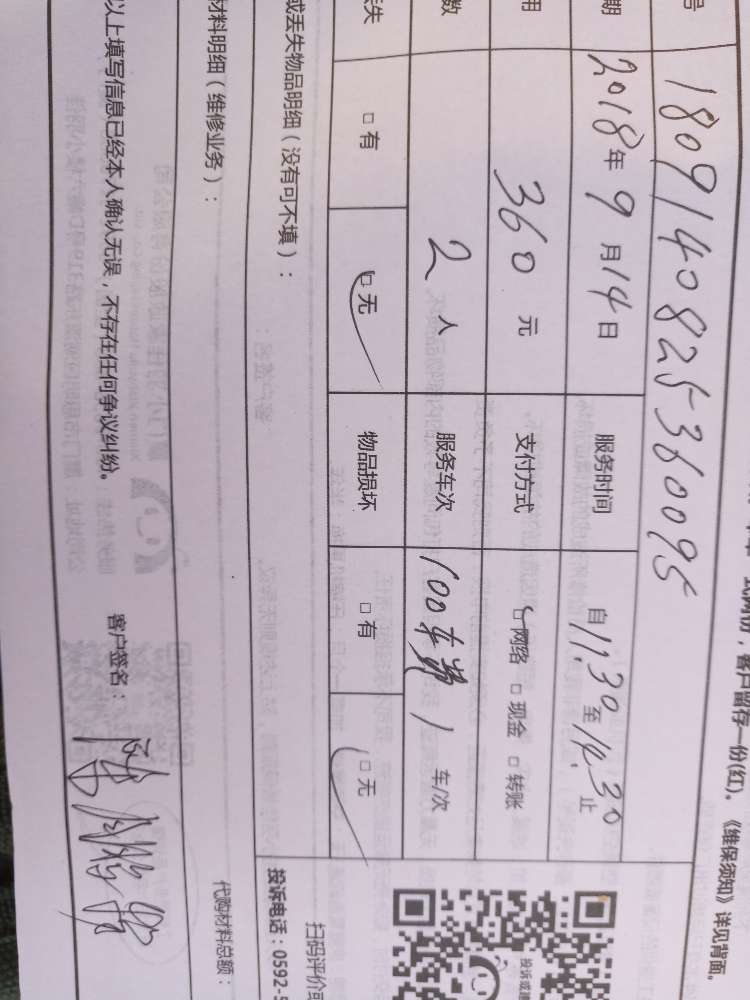 一式两份，客户留存一份(红)。《维保须知》详见背面。
号 1809140825360095
期 2018年9月14日 服务时间 自11:30至14:30止
用 360元 支付方式 网络 □现金 □转账
数 2人 服务车次 100车费1车/次
失 □有 □无 物品损坏 □有 □无
或丢失物品明细（没有可不填）：
扫码评价
投诉电话：0592-5
材料明细（维修业务）：
代购材料总额：
以上填写信息已经本人确认无误，不存在任何争议纠纷。 客户签名：